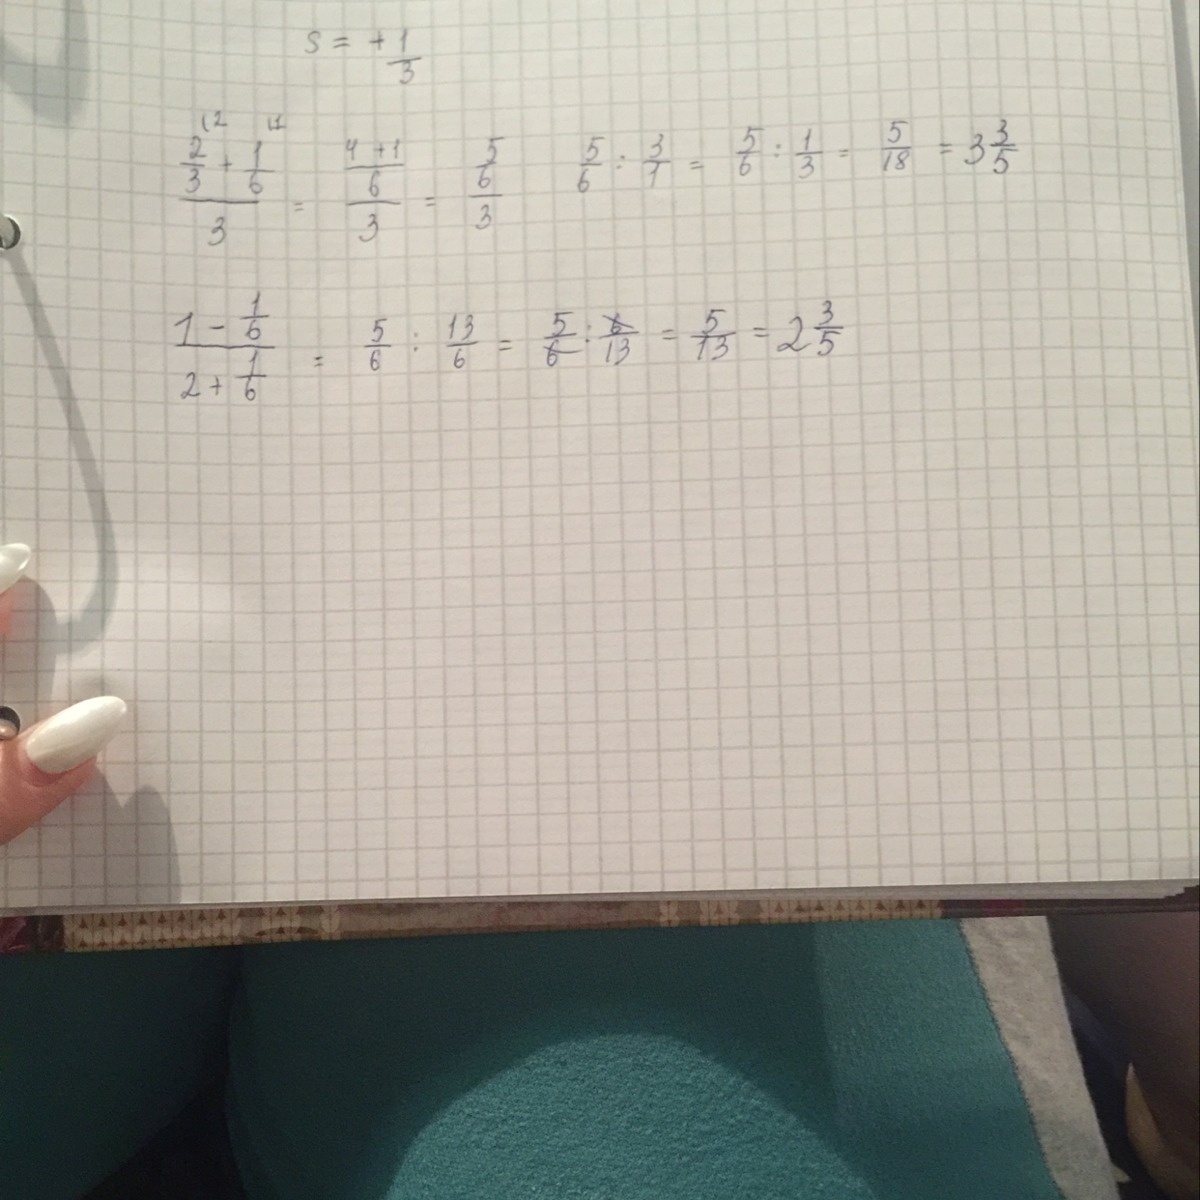 S = + 1/3
(2/3 + 1/6)/3 = ((4+1)/6)/3 = (5/6)/3 5/6 : 3/1 = 5/6 : 1/3 = 5/18 = 3 3/5
(1 - 1/6)/(2 + 1/6) = 5/6 : 13/6 = 5/6 : 6/13 = 5/13 = 2 3/5